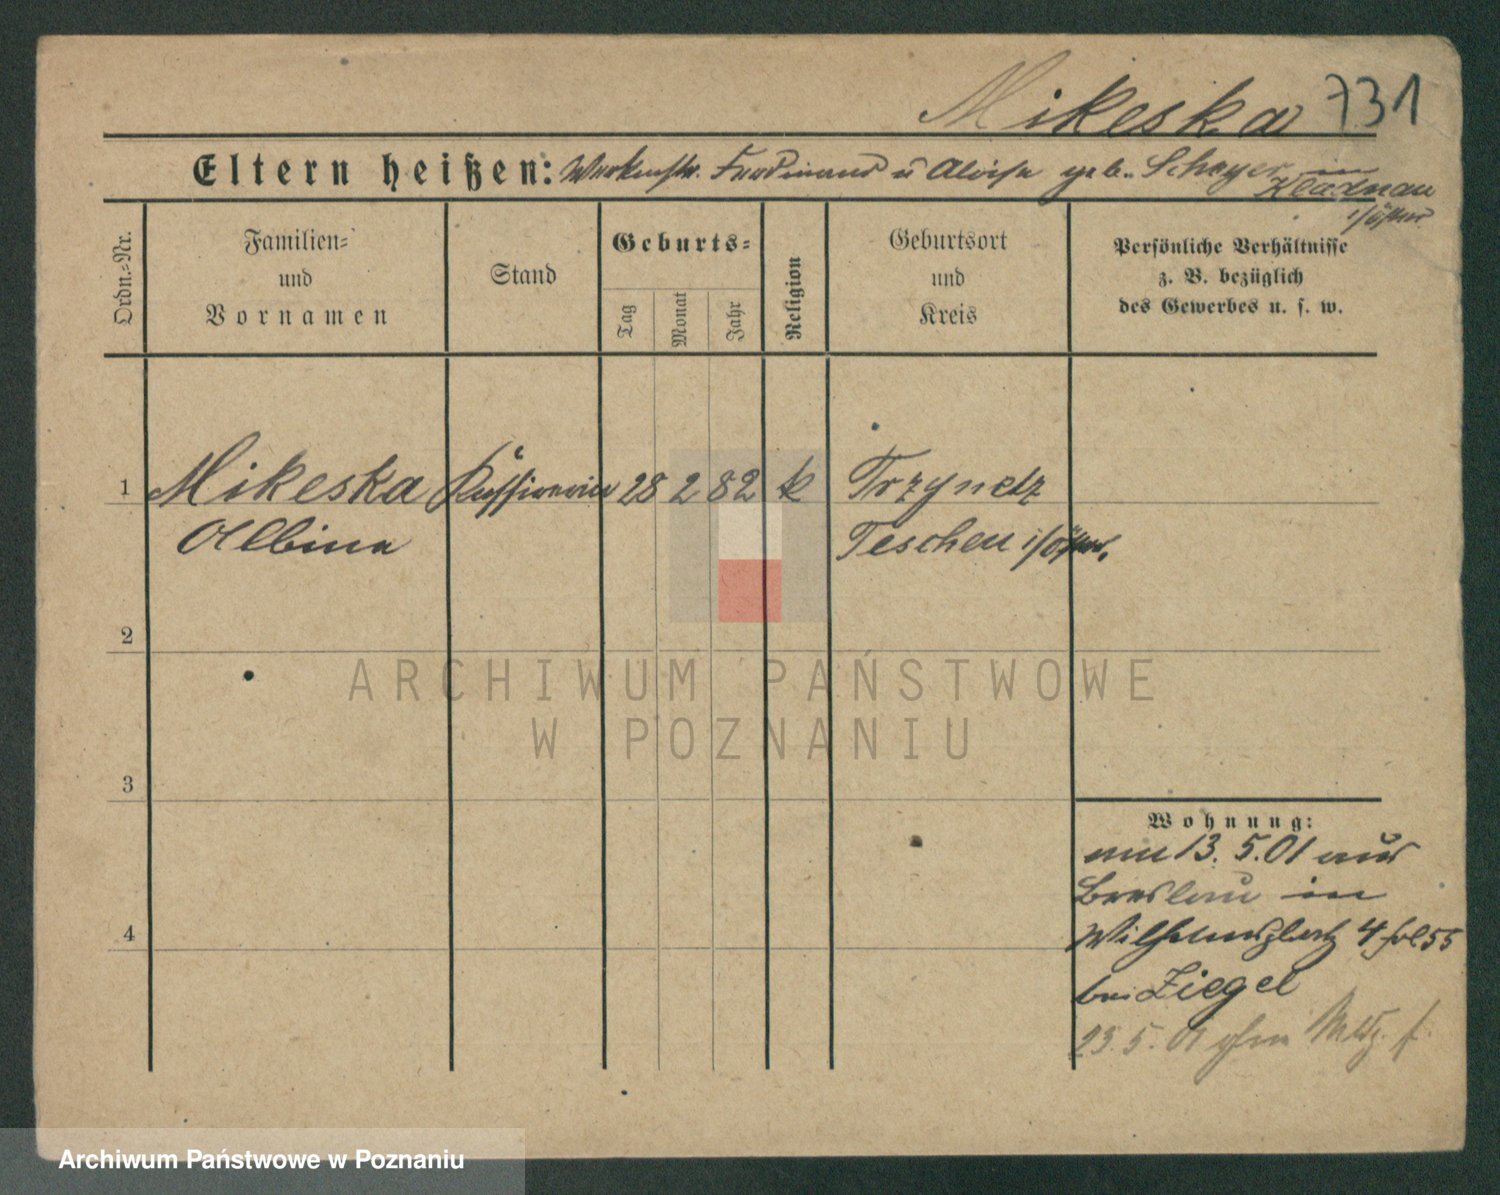 Mikeska 731
Eltern heißen: Werkmstr. Ferdinand u Aloisa geb. Scheyer in
Kladnau
i/Östr.
Ordn.-Nr.
Familien-
und
Vornamen
Stand
Geburts-
Tag
Monat
Jahr
Religion
Geburtsort
und
Kreis
Persönliche Verhältnisse
z. B. bezüglich
des Gewerbes u. s. w.
1 Mikeska Kassirerin 28 2 82 k Trzynetz
Albina Teschen i/Östr.
2
ARCHIWUM PAŃSTWOWE
W POZNANIU
3
Wohnung:
am 13. 5. 01 aus
Breslau in
4
Wilhelmsplatz 4 fol 55
bei Ziegel
23. 5. 01 ohne Meldg.
Archiwum Państwowe w Poznaniu